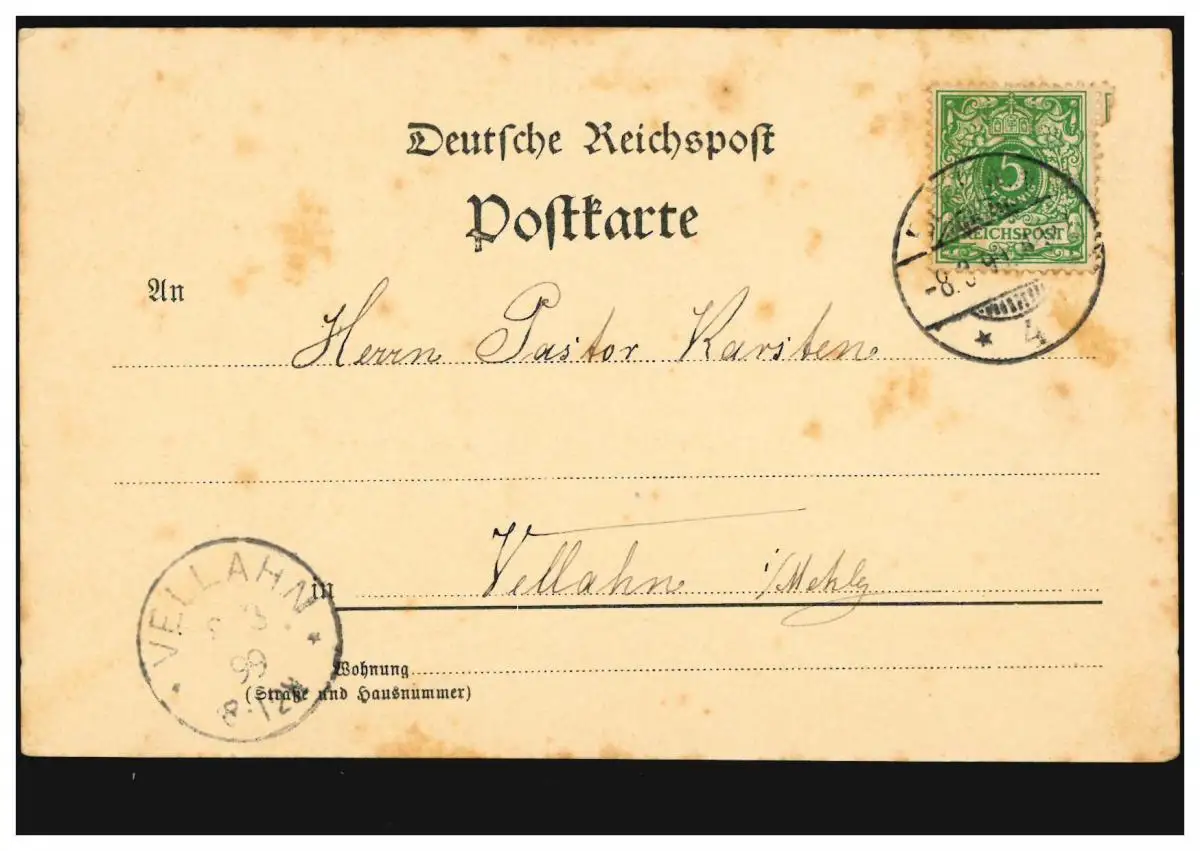 Deutsche Reichspost
Postkarte
5
REICHSPOST
-8.3.99.
* 4
An
Herrn Pastor Karsten
in Vellahn i/Meklg
VELLAHN
3
99
8-12V
Wohnung
(Straße und Hausnummer)